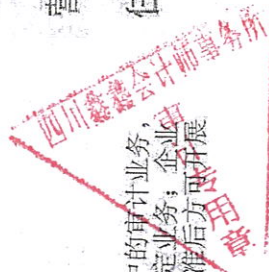 四川鑫鑫会计师事务所
审计专用章
中的审计业务,
定业务；企业
准后方可开展